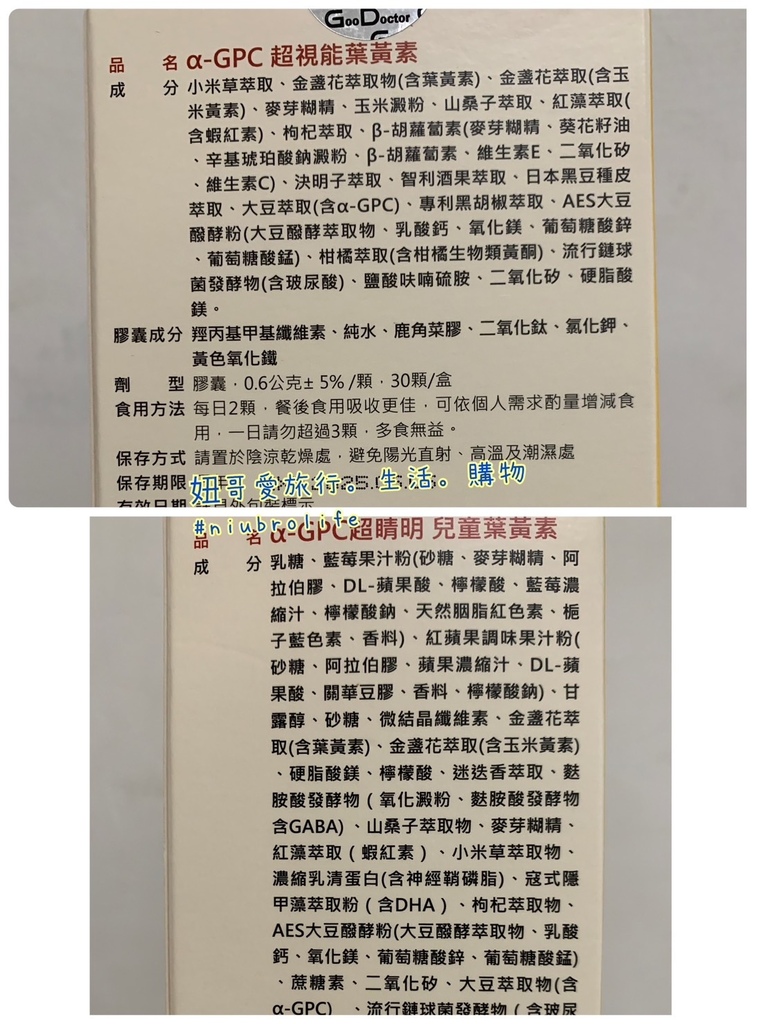 GooDoctor
品名 α-GPC 超視能葉黃素
成分 小米草萃取、金盞花萃取物(含葉黃素)、金盞花萃取(含玉
米黃素)、麥芽糊精、玉米澱粉、山桑子萃取、紅藻萃取(
含蝦紅素)、枸杞萃取、β-胡蘿蔔素(麥芽糊精、葵花籽油
、辛基琥珀酸鈉澱粉、β-胡蘿蔔素、維生素E、二氧化矽
、維生素C)、決明子萃取、智利酒果萃取、日本黑豆種皮
萃取、大豆萃取(含α-GPC)、專利黑胡椒萃取、AES大豆
醱酵粉(大豆醱酵萃取物、乳酸鈣、氧化鎂、葡萄糖酸鋅
、葡萄糖酸錳)、柑橘萃取(含柑橘生物類黃酮)、流行鏈球
菌發酵物(含玻尿酸)、鹽酸呋喃硫胺、二氧化矽、硬脂酸
鎂。
膠囊成分 羥丙基甲基纖維素、純水、鹿角菜膠、二氧化鈦、氯化鉀、
黃色氧化鐵
劑型 膠囊，0.6公克± 5% /顆，30顆/盒
食用方法 每日2顆，餐後食用吸收更佳，可依個人需求酌量增減食
用，一日請勿超過3顆，多食無益。
保存方式 請置於陰涼乾燥處，避免陽光直射、高溫及潮濕處
保存期限
妞哥愛旅行。生活。購物
有效日期
#niubrolife
品名 α-GPC超晴明 兒童葉黃素
成分 乳糖、藍莓果汁粉(砂糖、麥芽糊精、阿
拉伯膠、DL-蘋果酸、檸檬酸、藍莓濃
縮汁、檸檬酸鈉、天然胭脂紅色素、梔
子藍色素、香料)、紅蘋果調味果汁粉(
砂糖、阿拉伯膠、蘋果濃縮汁、DL-蘋
果酸、關華豆膠、香料、檸檬酸鈉)、甘
露醇、砂糖、微結晶纖維素、金盞花萃
取(含葉黃素)、金盞花萃取(含玉米黃素)
、硬脂酸鎂、檸檬酸、迷迭香萃取、麩
胺酸發酵物（氧化澱粉、麩胺酸發酵物
含GABA）、山桑子萃取物、麥芽糊精、
紅藻萃取（蝦紅素）、小米草萃取物、
濃縮乳清蛋白(含神經鞘磷脂)、寇式隱
甲藻萃取粉（含DHA）、枸杞萃取物、
AES大豆醱酵粉(大豆醱酵萃取物、乳酸
鈣、氧化鎂、葡萄糖酸鋅、葡萄糖酸錳)
、蔗糖素、二氧化矽、大豆萃取物(含
α-GPC)、流行鏈球菌發酵物（含玻尿